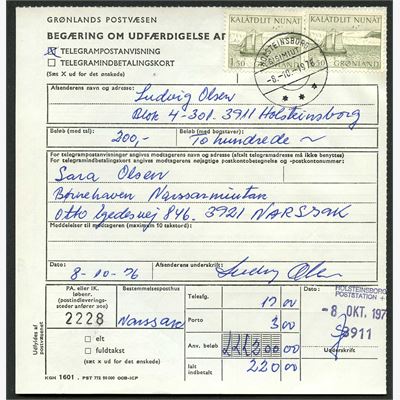 GRØNLANDS POSTVÆSEN
BEGÆRING OM UDFÆRDIGELSE AF
TELEGRAMPOSTANVISNING
TELEGRAMINDBETALINGSKORT
(Sæt X ud for det ønskede)
KALÂTDLIT NUNÂT KALÂTDLIT NUNÂT
150 GRØNLAND GRØNLAND
HOLSTEINSBORG
SISIMIUT
-8.-10.-1976
Afsenderens navn og adresse:
Ludvig Olsen
Blok 4-301. 3911 Holsteinsborg
Beløb (med tal) Beløb (med bogstaver):
200,- To hundrede
For telegrampostanvisning angives modtagerens navn og adresse (afkit telegramadresse må ikke benyttes)
For telegramindbetalingskort angives modtagerens nøjagtige postkontobetegnelse og -postkontonummer:
Sara Olsen
Børnehaven Narssarmiutan
Otto Egedesvej 846. 3921 NARSSAK
Meddelelser til modtageren (maximum 10 takstord):
Dato: Afsenderens underskrift:
8-10-76 Ludvig Olsen
PA. el. IK. løbenr. (postindleveringssteder anfører 200)
Bestemmelsesposthus
2228 Narssak
elt
fuldtakst
(sæt X ud for det ønskede)
Udfyldes af postvæsenet
Telesafg. 17 00
Porto 3 00
Anv. beløb 200 00
Ialt indbetalt 220 00
Dato:
HOLSTEINSBORG
POSTSTATION
-8. OKT. 197
3911
Underskrift
KGH 1601. PST 772 50 000 OCB-ICP